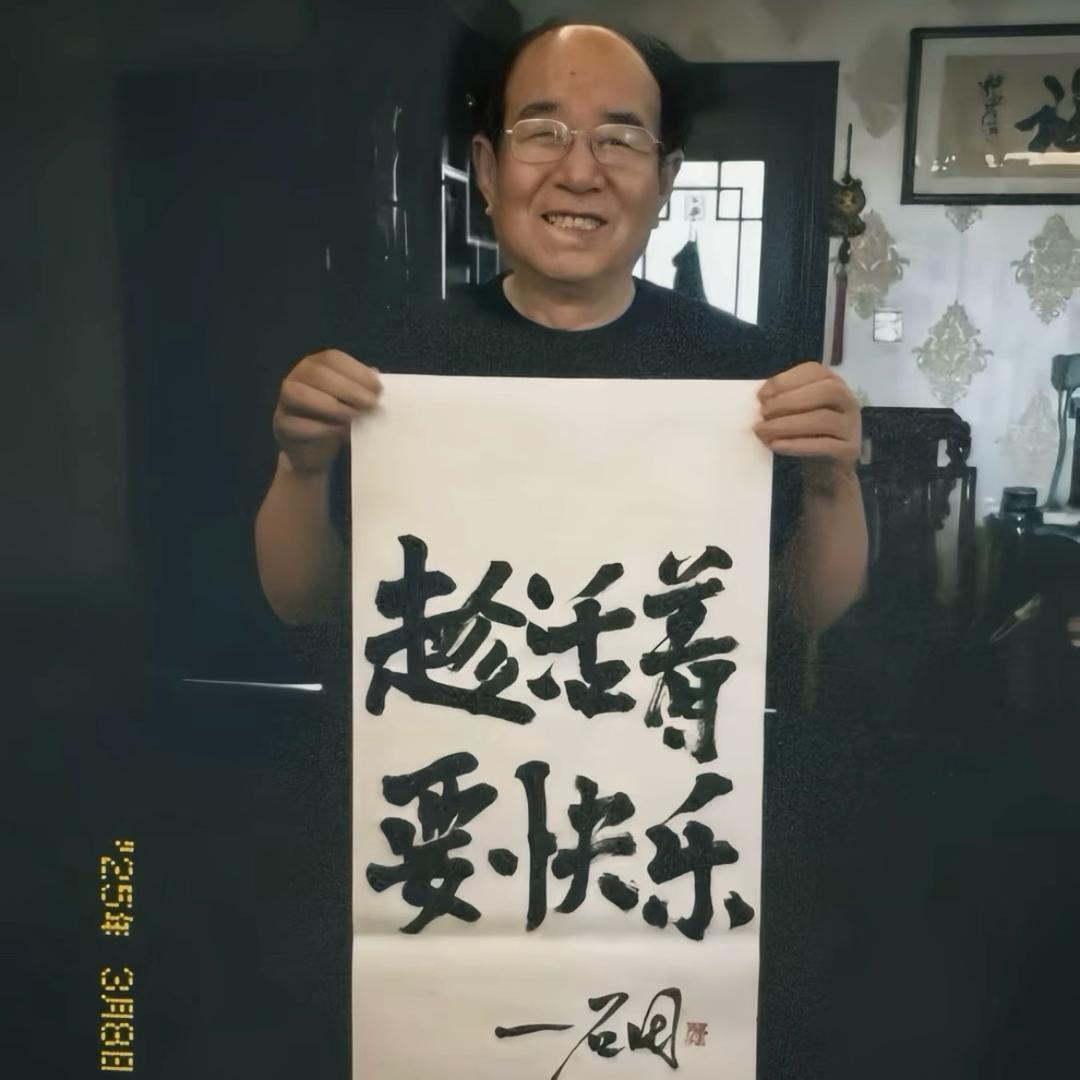 趁活着
要快乐
一石
'25年 3月8日